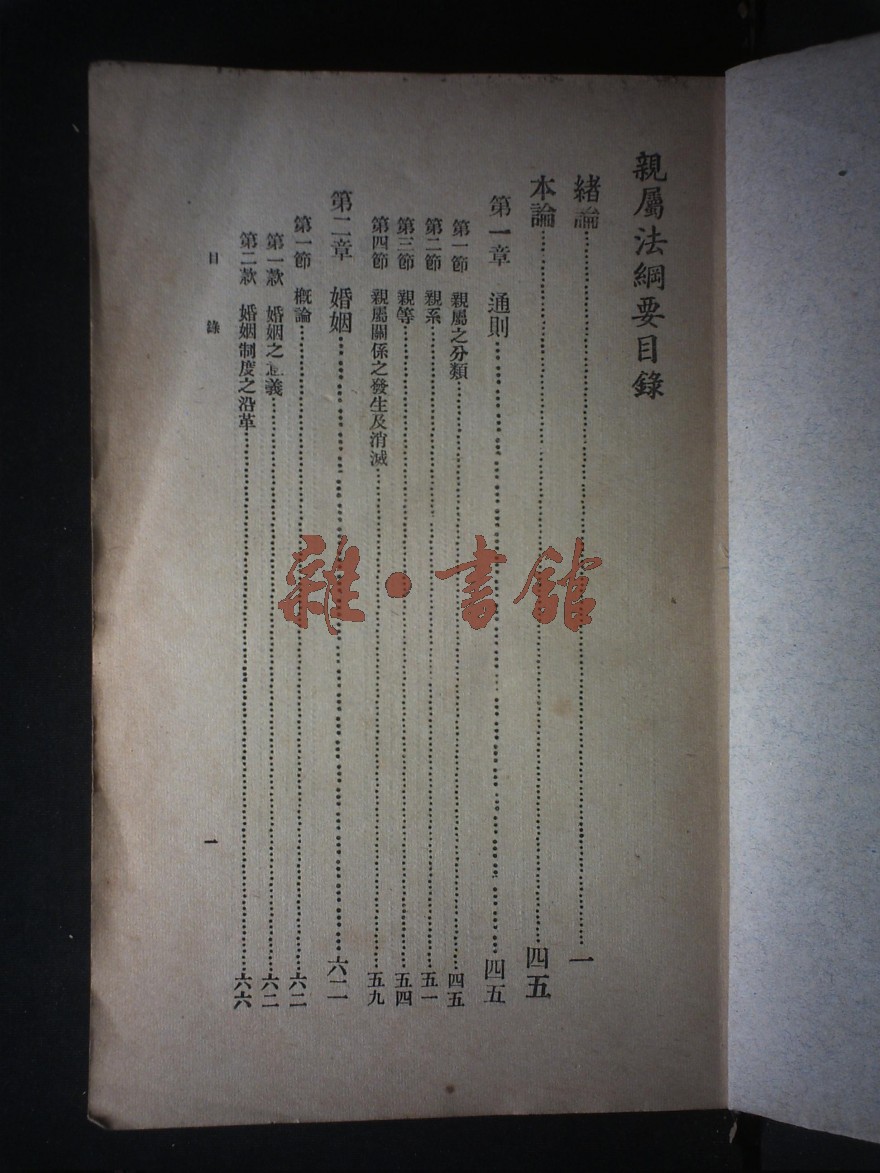 親屬法綱要目錄
緒論……一
本論……四五
第一章 通則……四五
第一節 親屬之分類……四五
第二節 親系……五一
第三節 親等……五四
第四節 親屬關係之發生及消滅……五九
第二章 婚姻……六二
第一節 概論……六二
第一款 婚姻之意義……六二
第二款 婚姻制度之沿革……六六
目錄 一
雜·書館